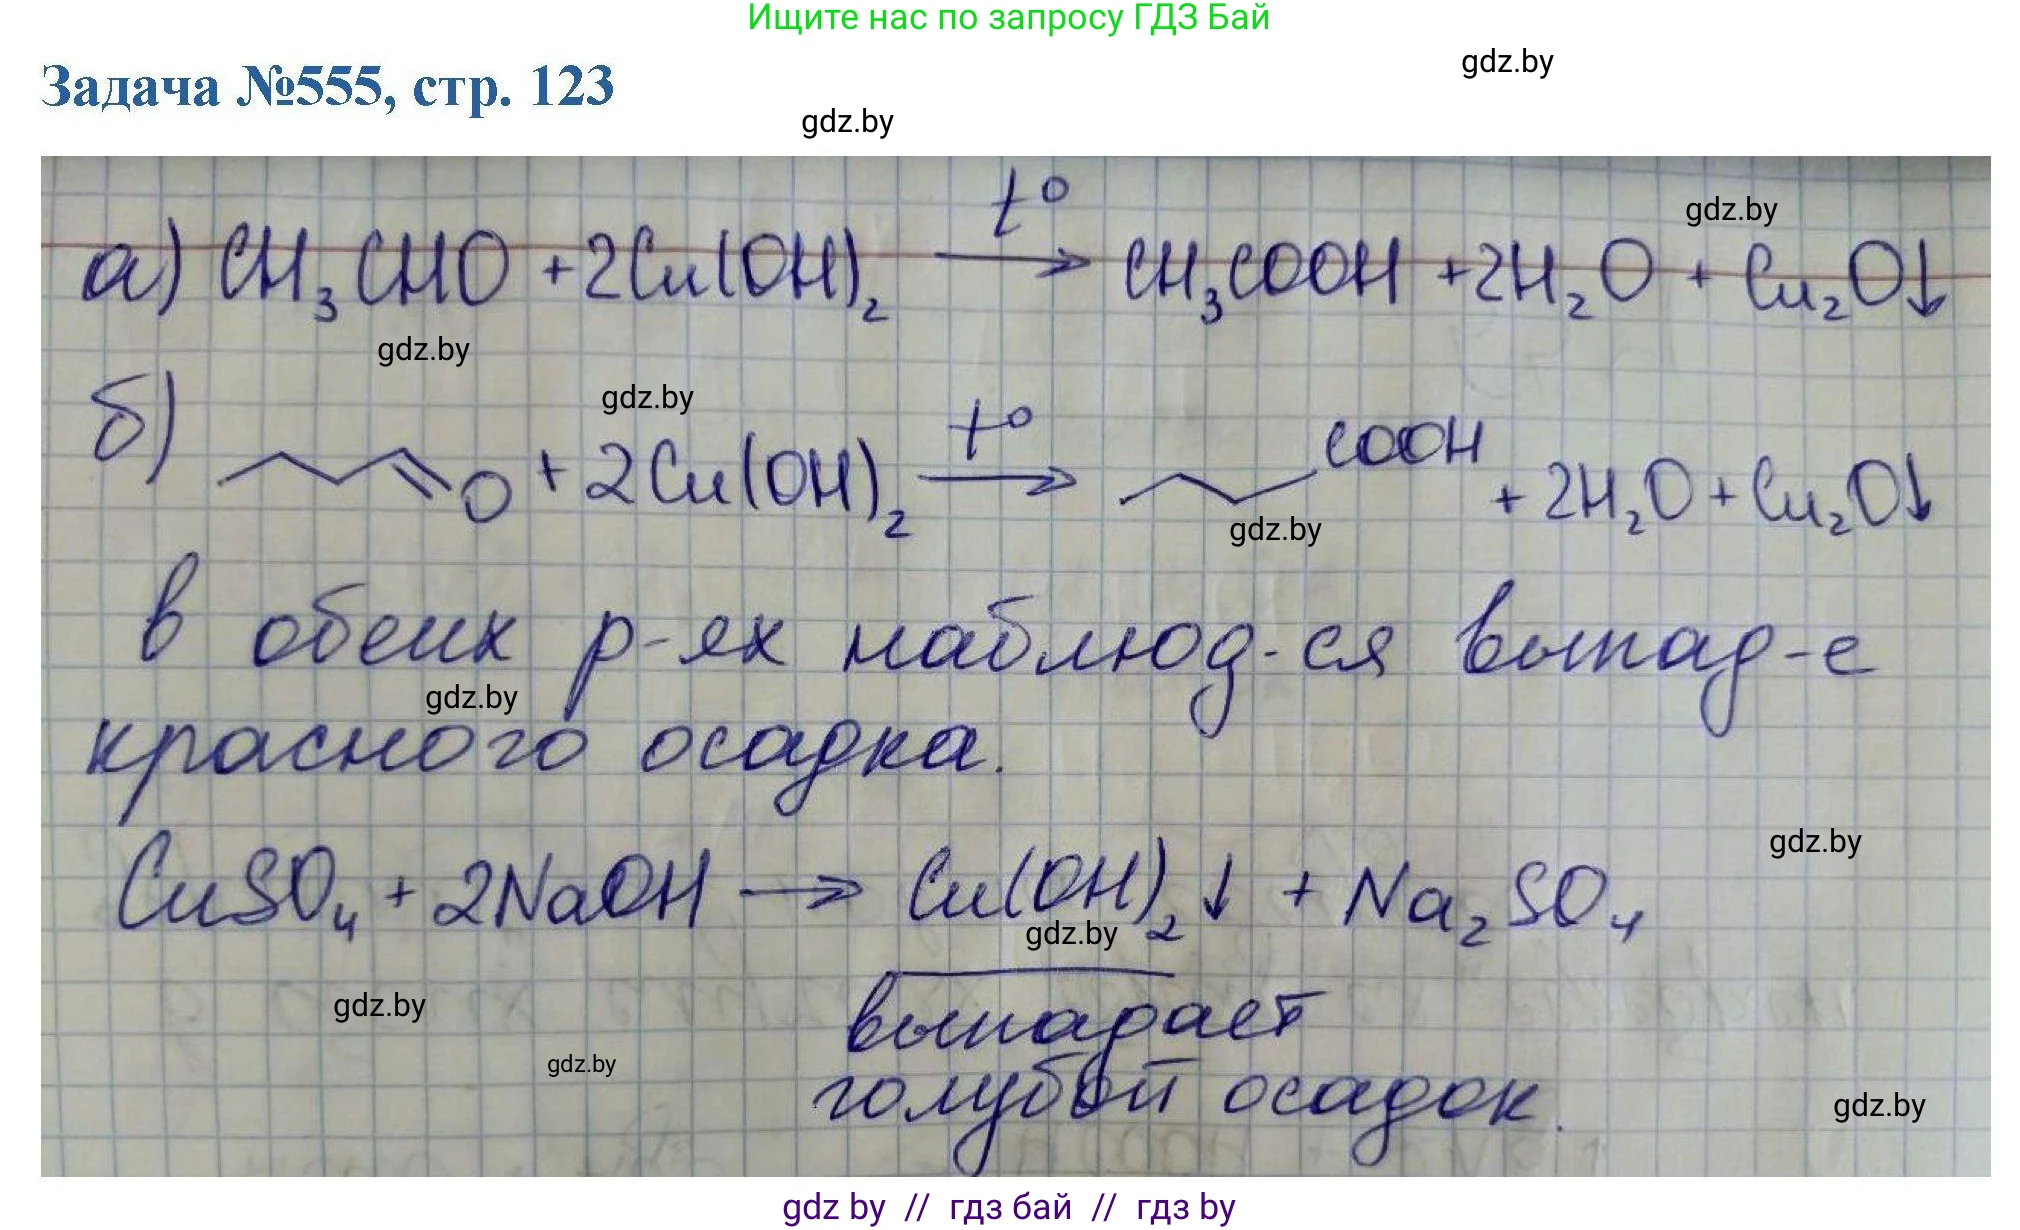 Ищите нас по запросу ГДЗ Бай
gdz.by
Задача №555, стр. 123
gdz.by
gdz.by
а) CH₃CHO + 2Cu(OH)₂ t° → CH₃COOH + 2H₂O + Cu₂O↓
gdz.by
gdz.by
б) O + 2Cu(OH)₂ t° → COOH + 2H₂O + Cu₂O↓
gdz.by
в обеих р-ях наблюд-ся выпад-е
gdz.by
красного осадка.
gdz.by
CuSO₄ + 2NaOH → Cu(OH)₂↓ + Na₂SO₄
gdz.by
выпадает
gdz.by
gdz.by
голубой осадок.
gdz.by
gdz by // гдз бай // гдз by